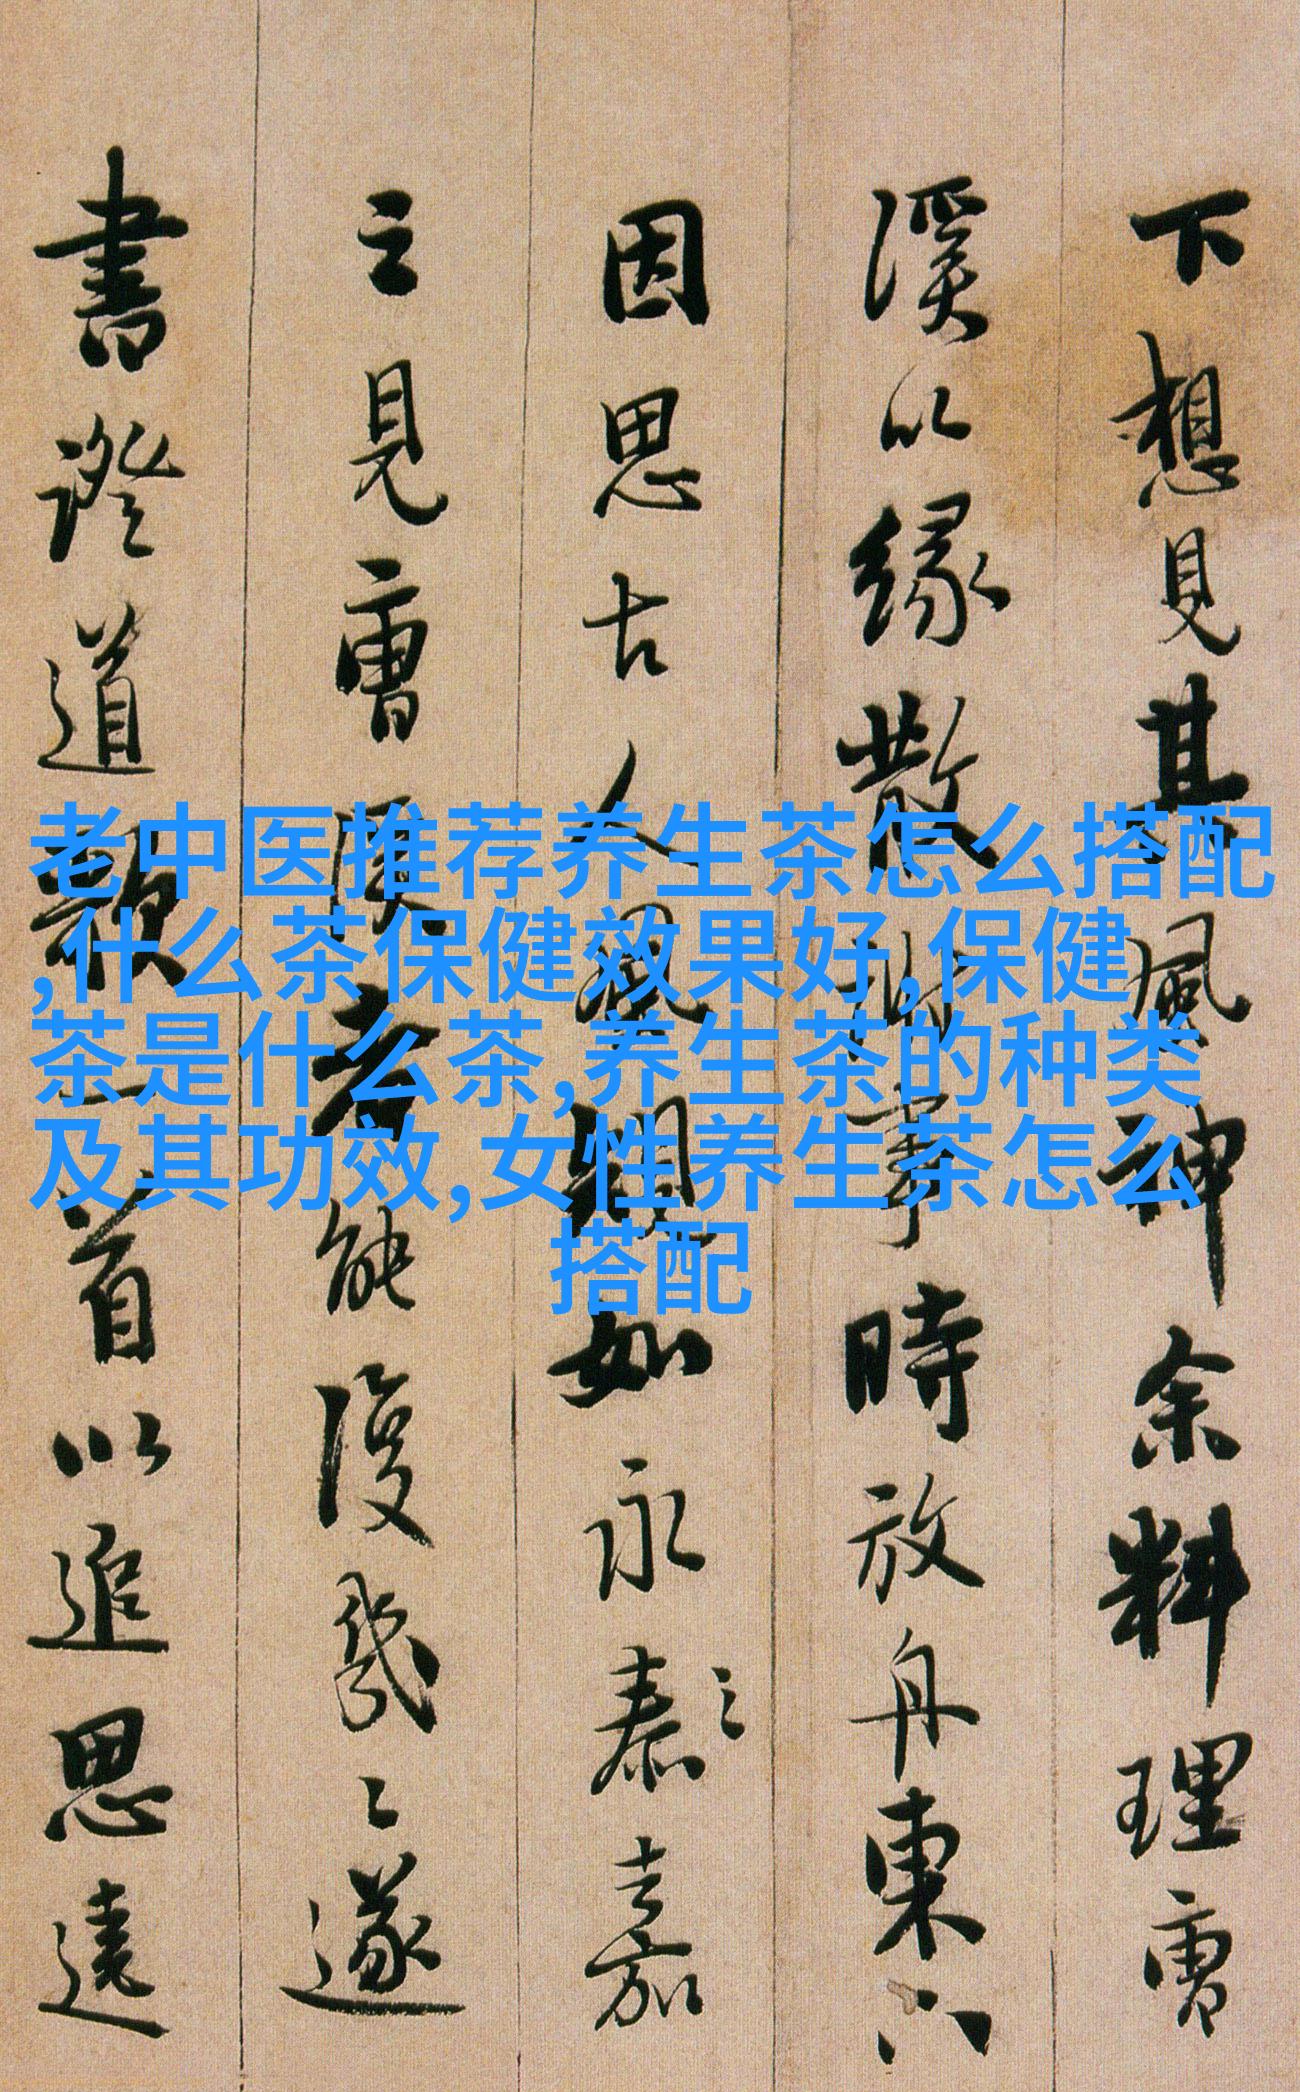 老中医推荐养生茶怎么搭配
,什么茶保健效果好,保健
茶是什么茶,养生茶的种类
及其功效,女性养生茶怎么
搭配
下想見其風神余料理雪
溪以緣散事時放舟東
因思古人風如永泰之嘉
之見雪溪者能復幾々遂
書證道歌一首以追思遠